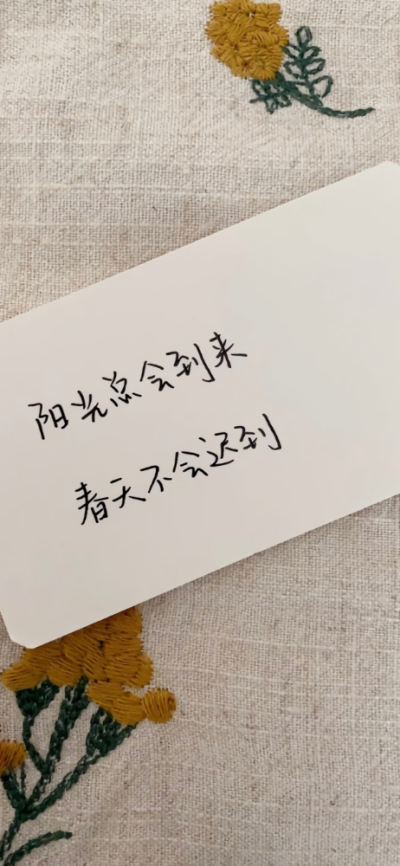 阳光总会到来
春天不会迟到